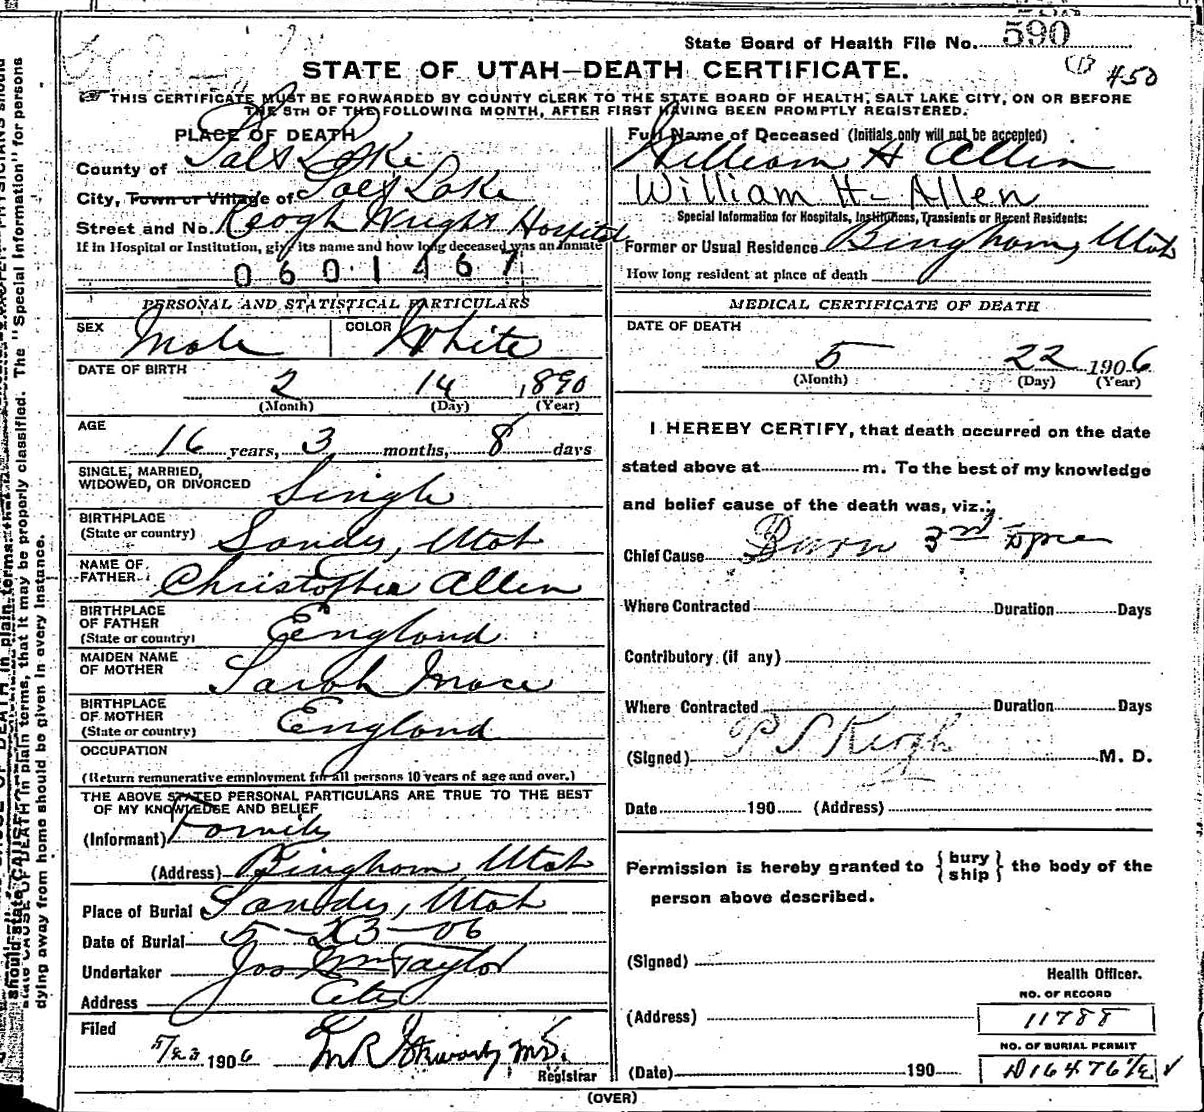 State Board of Health File No. 590
(1) 450
STATE OF UTAH—DEATH CERTIFICATE.
THIS CERTIFICATE MUST BE FORWARDED BY COUNTY CLERK TO THE STATE BOARD OF HEALTH, SALT LAKE CITY, ON OR BEFORE
THE 5TH OF THE FOLLOWING MONTH, AFTER FIRST HAVING BEEN PROMPTLY REGISTERED.
PLACE OF DEATH
County of Salt Lake
City, Town or Village of Salt Lake
Street and No. Keogh Wright Hospital
If in Hospital or Institution, give its name and how long deceased was an inmate
0601467
Full Name of Deceased (Initials only will not be accepted)
William H Allen
William H- Allen
Special Information for Hospitals, Institutions, Transients or Recent Residents:
Former or Usual Residence Bingham, Utah
How long resident at place of death
PERSONAL AND STATISTICAL PARTICULARS
SEX Male COLOR White
DATE OF BIRTH
2 14 1890
(Month) (Day) (Year)
AGE
16 years, 3 months, 8 days
SINGLE, MARRIED,
WIDOWED, OR DIVORCED Single
BIRTHPLACE
(State or country) Sandy, Utah
NAME OF
FATHER Christopher Allen
BIRTHPLACE
OF FATHER
(State or country) England
MAIDEN NAME
OF MOTHER Sarah Mace
BIRTHPLACE
OF MOTHER
(State or country) England
OCCUPATION
(Return remunerative employment for all persons 10 years of age and over.)
THE ABOVE STATED PERSONAL PARTICULARS ARE TRUE TO THE BEST
OF MY KNOWLEDGE AND BELIEF
(Informant) Family
(Address) Bingham, Utah
Place of Burial Sandy, Utah
Date of Burial 5-23-06
Undertaker Jos Wm Taylor
Address City
Filed
5/23 1906 M.D.
Registrar
MEDICAL CERTIFICATE OF DEATH
DATE OF DEATH
5 22 1906
(Month) (Day) (Year)
I HEREBY CERTIFY, that death occurred on the date
stated above at m. To the best of my knowledge
and belief cause of the death was, viz.:
Chief Cause Burn 3rd
Where Contracted Duration Days
Contributory (if any)
Where Contracted Duration Days
(Signed) P S Keogh M. D.
Date 190 (Address)
Permission is hereby granted to {bury
ship} the body of the
person above described.
(Signed)
Health Officer.
NO. OF RECORD
(Address) 11788
NO. OF BURIAL PERMIT
(Date) 190 D16476 1/2
(OVER)
dying away from home should be given in every instance.
state CAUSE OF DEATH in plain terms, that it may be properly classified. The "Special Information" for persons